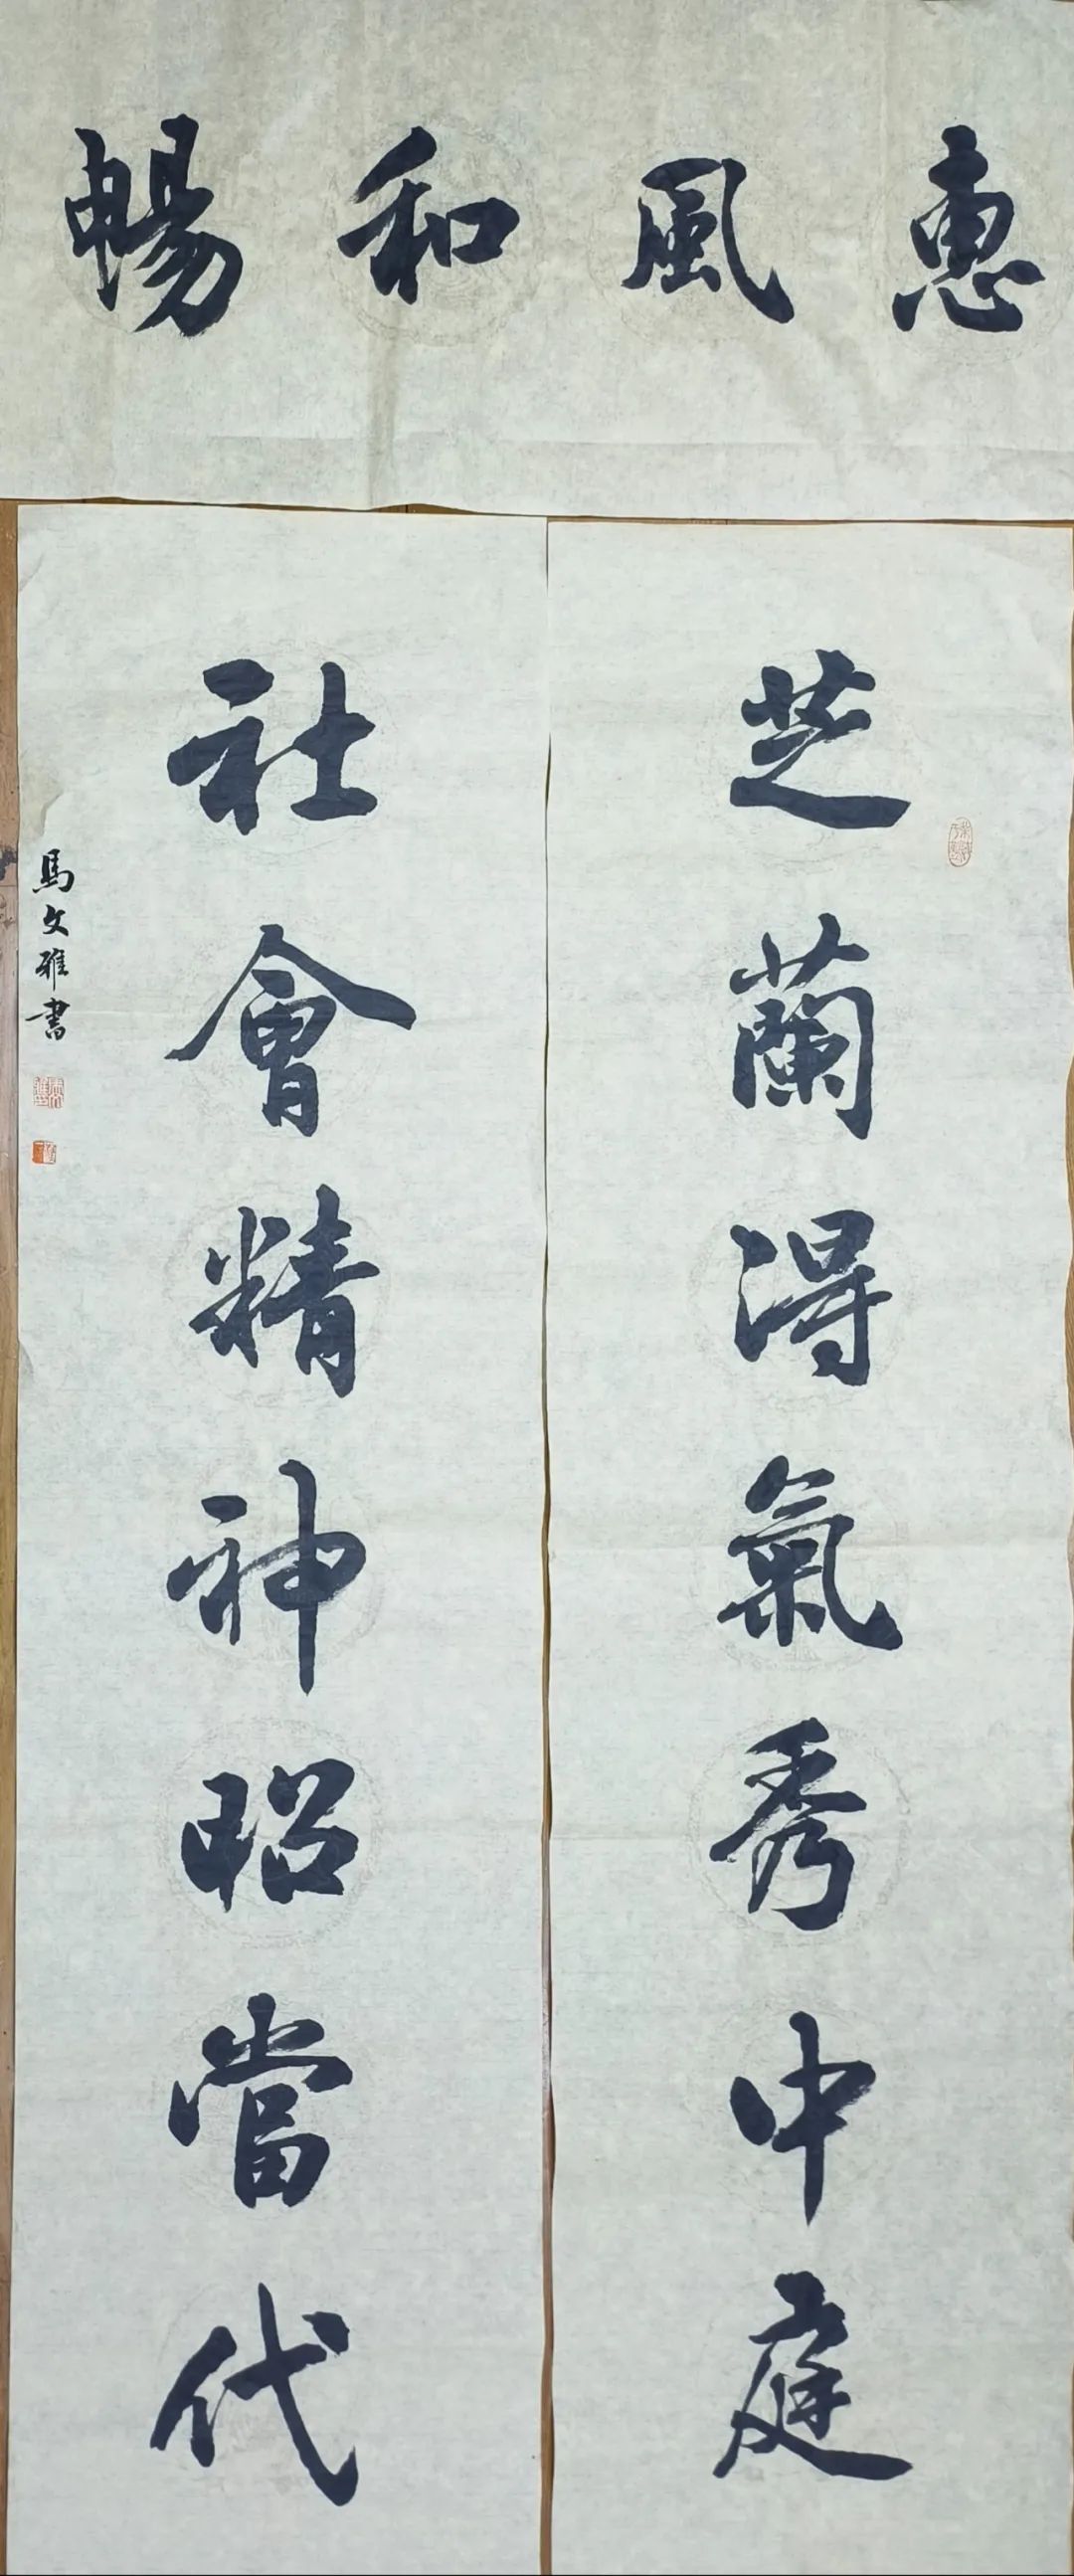 惠風和暢
芝蘭得氣秀中庭
社會精神昭當代
馬文雅書